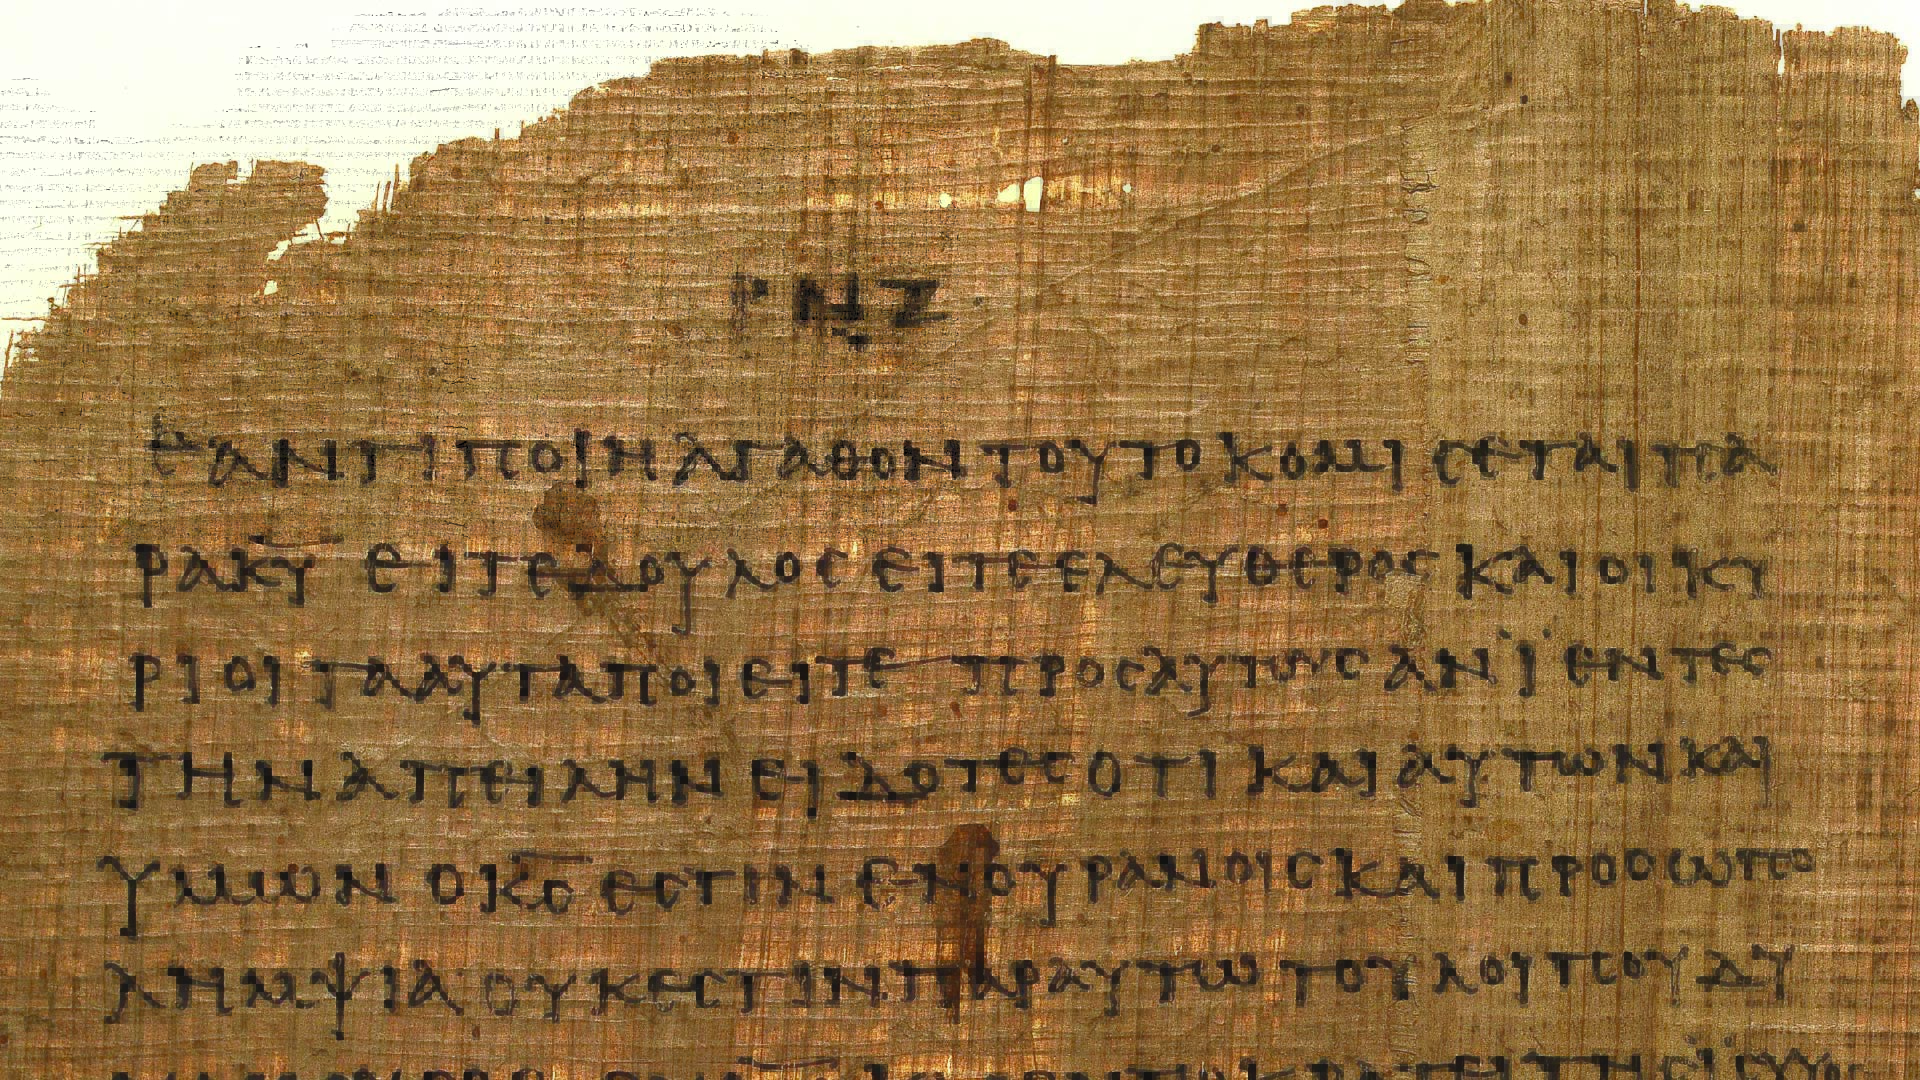 ΡΝΖ
ΕΑΝΤΙΠΟΙΗΑΓΑΘΟΝΤΟΥΤΟΚΟΜΙϹΕΤΑΙΠΑ
ΡΑΚ̅Υ̅ ΕΙΤΕΔΟΥΛΟϹΕΙΤΕΕΛΕΥΘΕΡΟϹΚΑΙΟΙΚΥ
ΡΙΟΙΤΑΑΥΤΑΠΟΙΕΙΤΕ ΠΡΟϹΑΥΤΟΥϹΑΝΪΕΝΤΕϹ
ΤΗΝΑΠΕΙΛΗΝΕΙΔΟΤΕϹΟΤΙΚΑΙΑΥΤΩΝΚΑΙ
ΥΜΩΝΟΚ̅Ϲ̅ΕϹΤΙΝΕΝΟΥΡΑΝΟΙϹΚΑΙΠΡΟϹΩΠΟ
ΛΗΜΨΙΑΟΥΚΕϹΤΙΝΠΑΡΑΥΤΩΤΟΥΛΟΙΠΟΥΔΥ